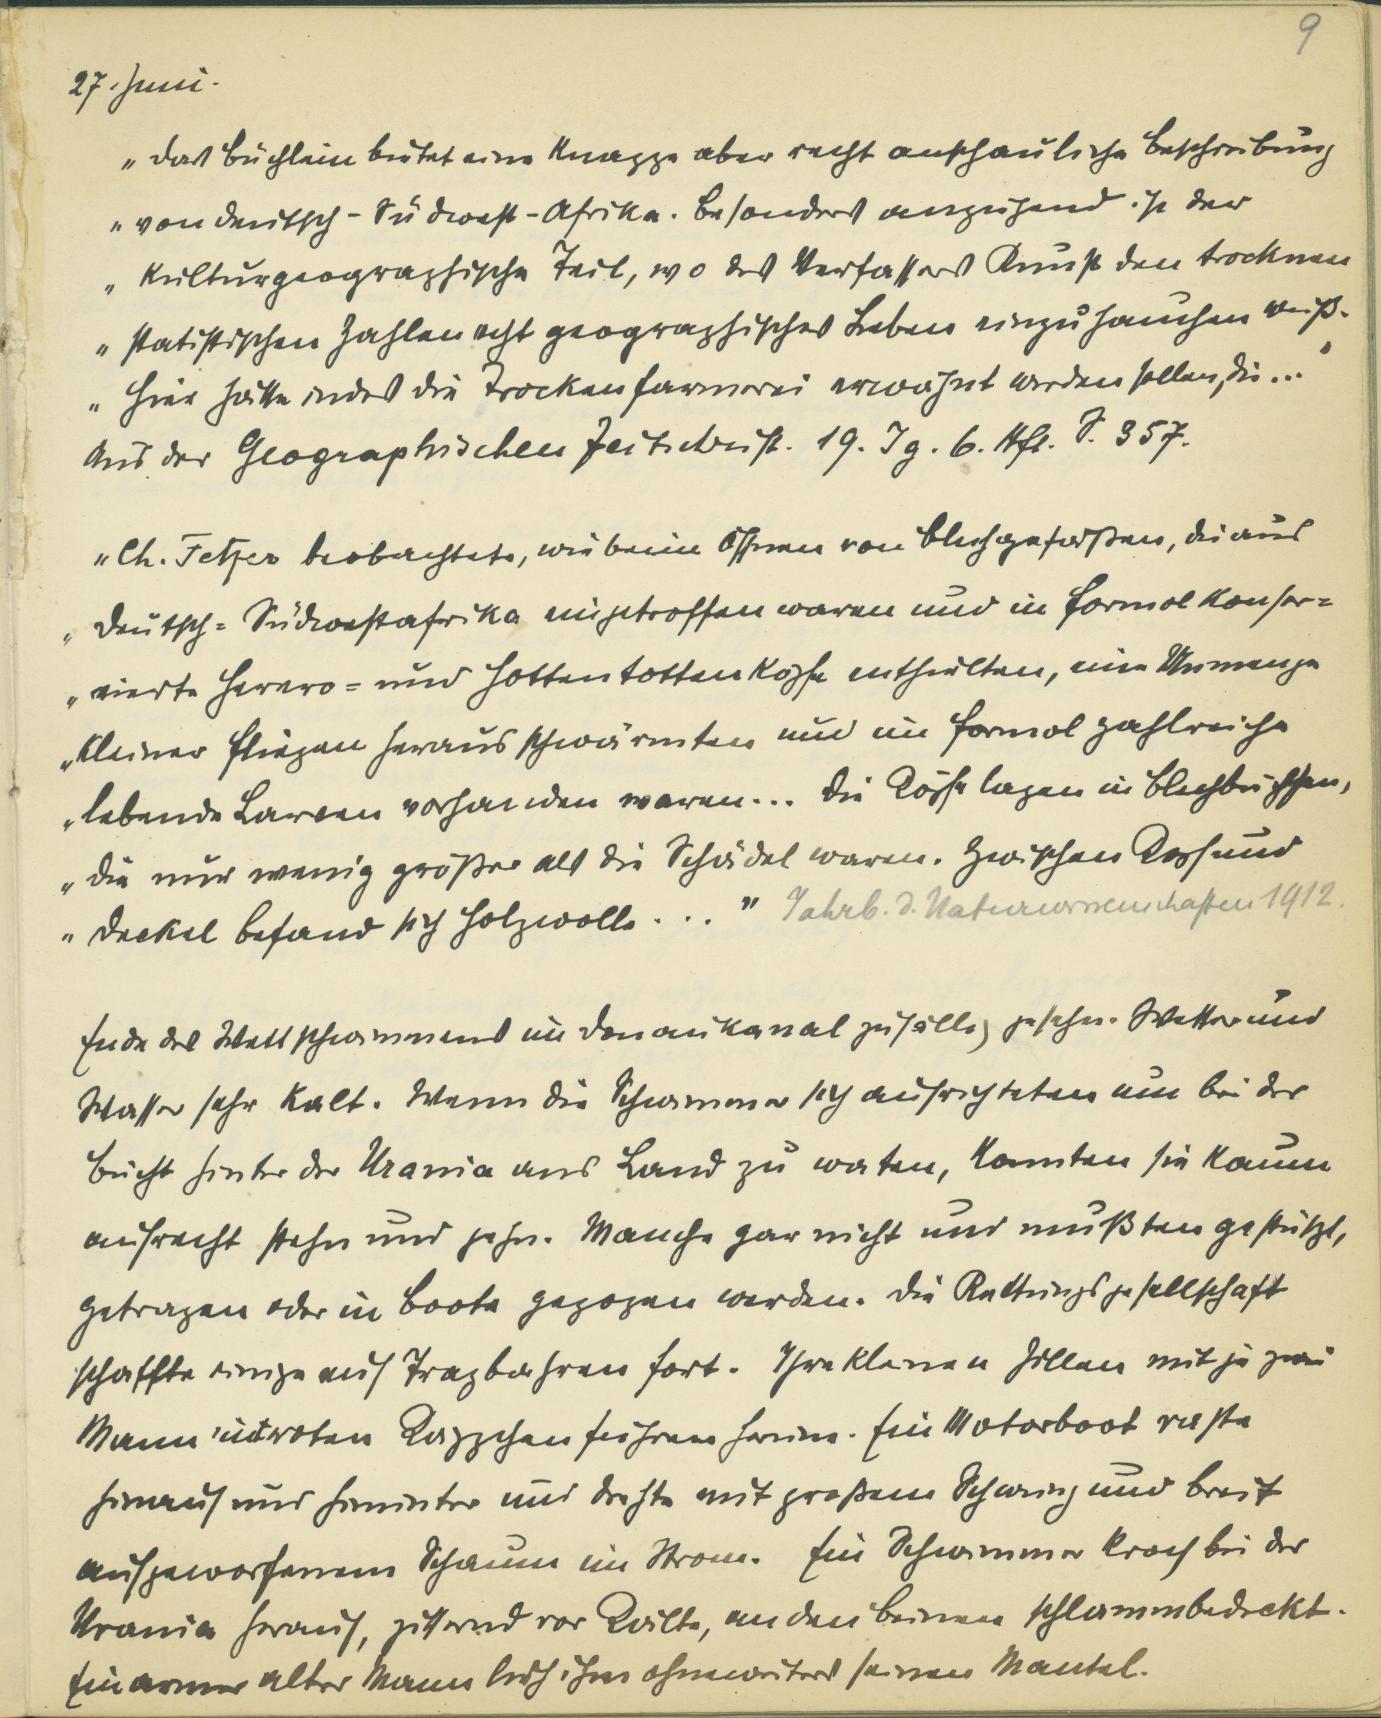 9
27. Juni.
„ Das Büchlein bietet eine knappe aber recht anschauliche Beschreibung
„ von Deutsch-Südwest-Afrika. Besonders anziehend ist der
„ kulturgeographische Teil, wo des Verfassers Kunst den trocknen
„ statistischen Zahlen echt geographisches Leben einzuhauchen weiß.
„ Hier hätte indes die Trockenfarmerei erwähnt werden sollen, die ... "
Aus der Geographischen Zeitschrift. 19. Jg. 6. Hft. S. 357.
„ Ch. Fetzer beobachtete, wie beim Öffnen von Blechgefäßen, die aus
„ Deutsch=Südwestafrika eingetroffen waren und in Formol konser=
„ vierte Herero= und Hottentottenköpfe enthielten, eine Unmenge
„ kleiner Fliegen herausschwärmten und im Formol zahlreiche
„ lebende Larven vorhanden waren ... Die Köpfe lagen in Blechbüchsen,
„ die nur wenig größer als die Schädel waren. Zwischen Kopf und
„ Deckel befand sich Holzwolle . . . " Jahrb. d. Naturwissenschaften 1912.
Ende des Wettschwimmens im Donaukanal zufällig gesehn. Wetter und
Wasser sehr kalt. Wenn die Schwimmer sich aufrichteten um bei der
Bucht hinter der Urania ans Land zu waten, konnten sie kaum
aufrecht stehn und gehn. Manche gar nicht und mußten gestützt,
getragen oder in Boote gezogen werden. Die Rettungsgesellschaft
schaffte einige auf Tragbahren fort. Ihre kleinen Zillen mit je zwei
Mann mit roten Käppchen fuhren herum. Ein Motorboot raste
hinauf und hinunter und drehte mit großem Schwung und breit
aufgeworfenem Schaum im Strom. Ein Schwimmer kroch bei der
Urania heraus, zitternd vor Kälte, an den Beinen schlammbedeckt.
Ein armer alter Mann lieh ihm ohneweiters seinen Mantel.